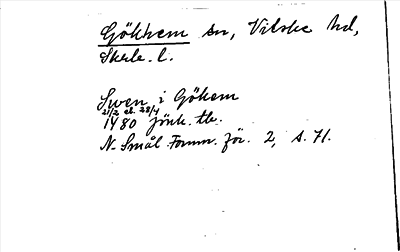 Gökhem sn, Vilske hd,
Skarab. l.
Swen i Gökem
21/2 el. 28/4
1480 Jönk. tb.
N. Smål. Fornm. för. 2, s. 71.